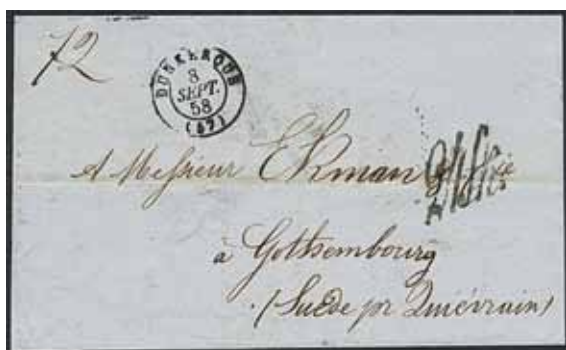 72
DUNKERQUE
8
SEPT.
58
(57)
A Messieur Ekman & Cie
à Gothembourg
(Suède pr Quiévrain)